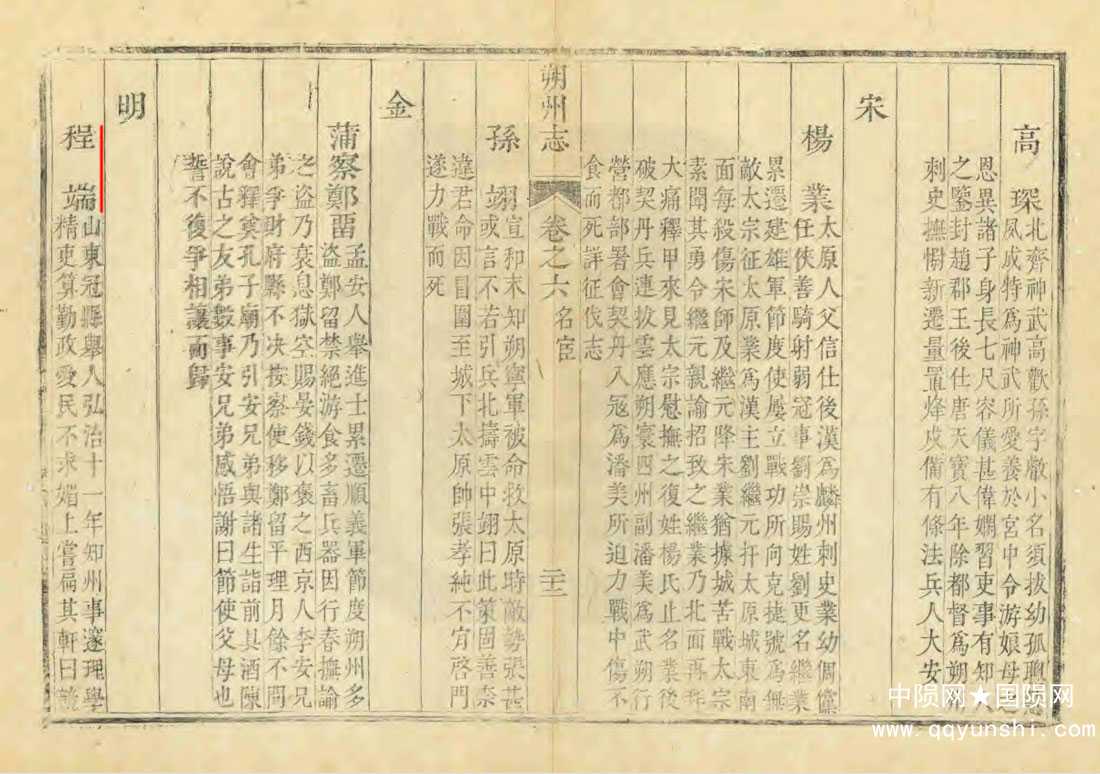 高　琛北齊神武高歡孫字敵小名須拔幼孤聰
恩異諸子身長七尺容儀甚偉嫻習吏事有知人
之鑒封趙郡王後仕唐天寶八年除都督爲朔州
刺史撫慰新遷量置烽戍備有條法兵人大安
夙成特爲神武所愛養於宮中令游娘母之
宋
楊　業太原人父信仕後漢爲麟州刺史業幼倜儻
任俠善騎射弱冠事劉崇賜姓劉更名繼業
累遷建雄軍節度使屢立戰功所向克捷號爲無
敵太宗征太原業爲漢主劉繼元扞太原城東南
面每殺傷宋師及繼元降宋業猶據城苦戰太宗
素聞其勇令繼元親諭招致之繼業乃北面再拜
大痛釋甲來見太宗慰撫之復姓楊氏止名業後
破契丹兵連拔雲應朔寰四州副潘美爲武朔行
營都部署會契丹入寇爲潘美所迫力戰中傷不
食而死詳征伐志
朔州志
卷之六 名宦
二十三
孫　翊宣和末知朔寧軍被命救太原時敵勢張甚
或言不若引兵北擣雲中翊曰此策固善柰
違君命因冒圍至城下太原帥張孝純不肯啓門
遂力戰而死
金
蒲察鄭畱孟安人舉進士累遷順義軍節度朔州多
盜鄭留禁絕游食多畜兵器因行春撫諭
之盜乃衰息獄空賜宴錢以褒之西京人李安兄
弟爭財府縣不決按察使移鄭留平理月餘不問
會釋奠孔子廟乃引安兄弟與諸生詣前具酒陳
說古之友弟數事安兄弟感悟謝曰節使父母也
誓不復爭相讓而歸
明
程　端山東冠縣舉人弘治十一年知州事邃理學
精吏算勤政愛民不求媚上嘗扁其軒曰
中陨网★国陨网
www.qqyunshi.com